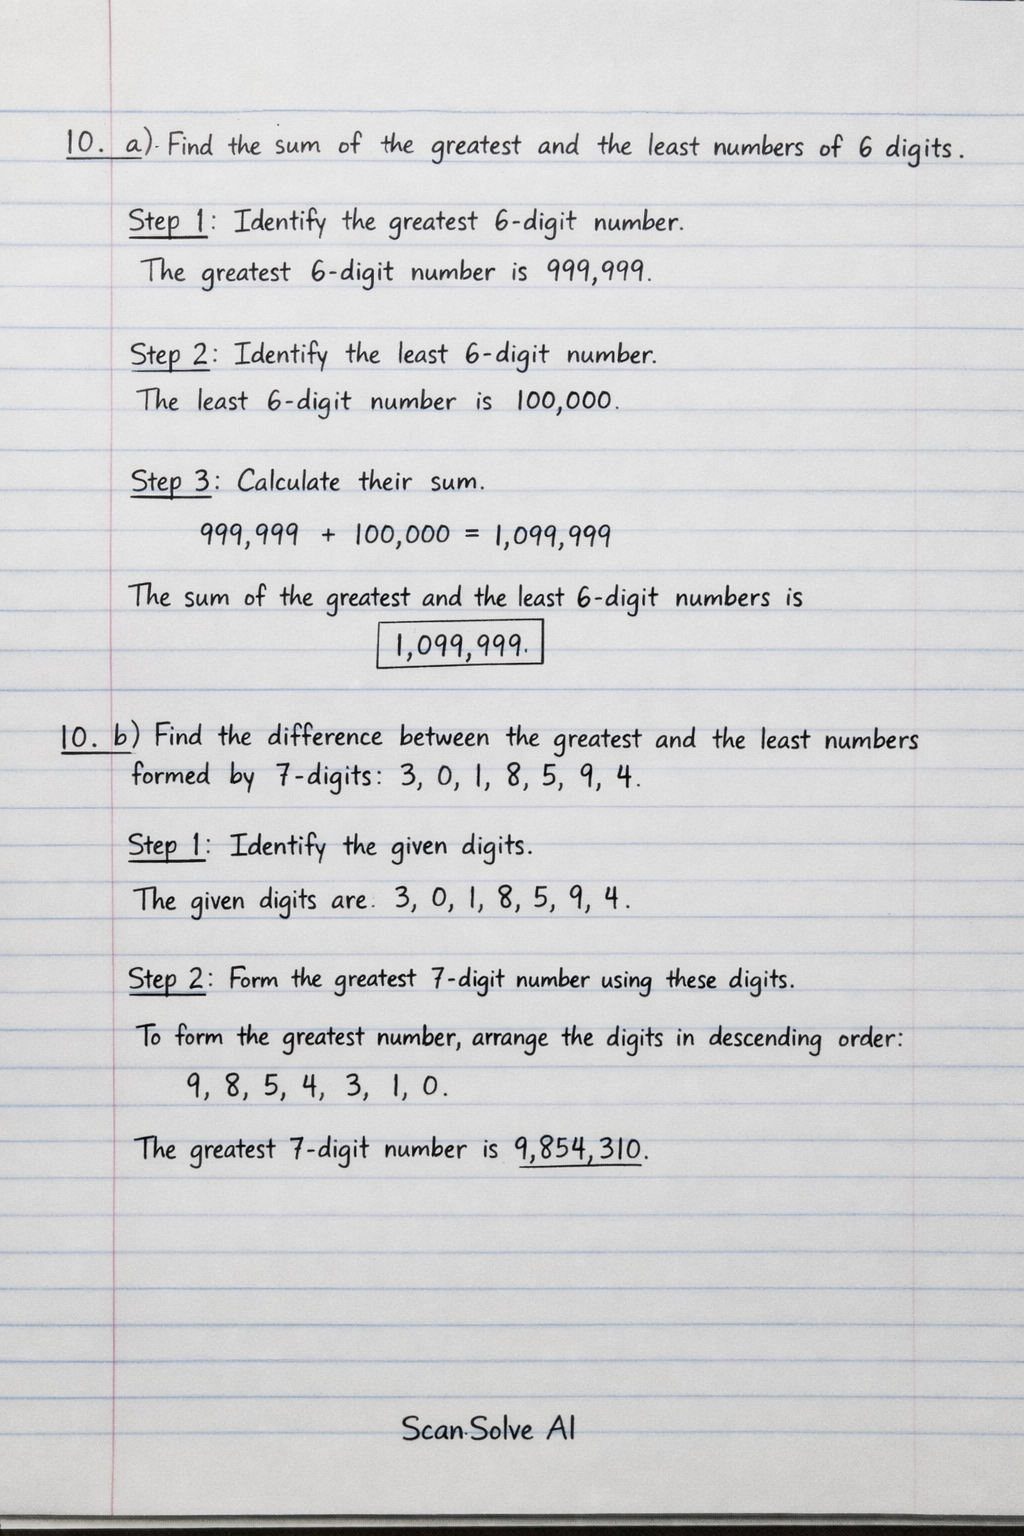 10. a). Find the sum of the greatest and the least numbers of 6 digits.
Step 1: Identify the greatest 6-digit number.
The greatest 6-digit number is 999,999.
Step 2: Identify the least 6-digit number.
The least 6-digit number is 100,000.
Step 3: Calculate their sum.
999,999 + 100,000 = 1,099,999
The sum of the greatest and the least 6-digit numbers is
1,099,999.
10. b) Find the difference between the greatest and the least numbers
formed by 7-digits: 3, 0, 1, 8, 5, 9, 4.
Step 1: Identify the given digits.
The given digits are. 3, 0, 1, 8, 5, 9, 4.
Step 2: Form the greatest 7-digit number using these digits.
To form the greatest number, arrange the digits in descending order:
9, 8, 5, 4, 3, 1, 0.
The greatest 7-digit number is 9,854,310.
Scan.Solve AI